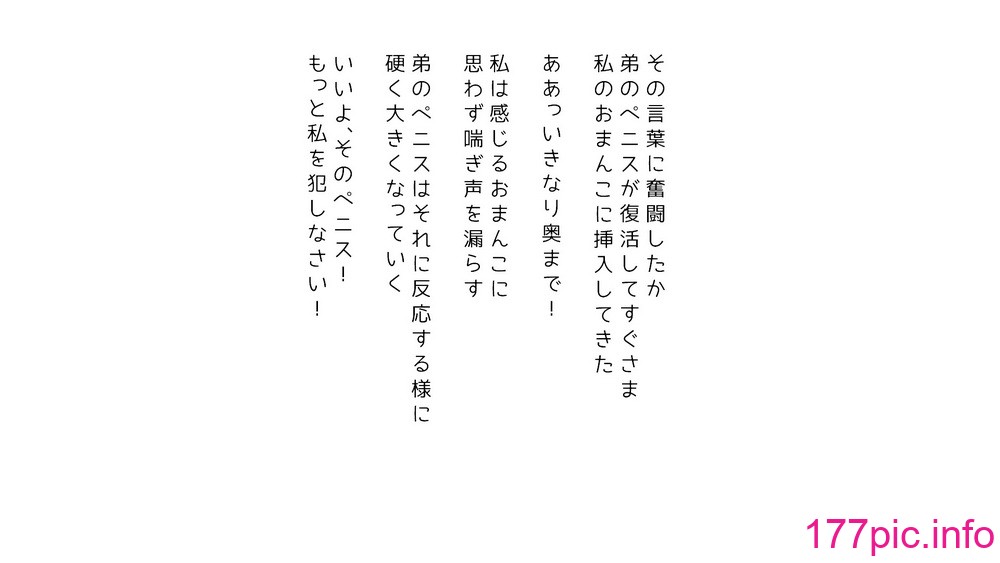 その言葉に奮闘したか
弟のペニスが復活してすぐさま
私のおまんこに挿入してきた
ああっいきなり奥まで！
私は感じるおまんこに
思わず喘ぎ声を漏らす
弟のペニスはそれに反応する様に
硬く大きくなっていく
いいよ、そのペニス！
もっと私を犯しなさい！
177pic.info